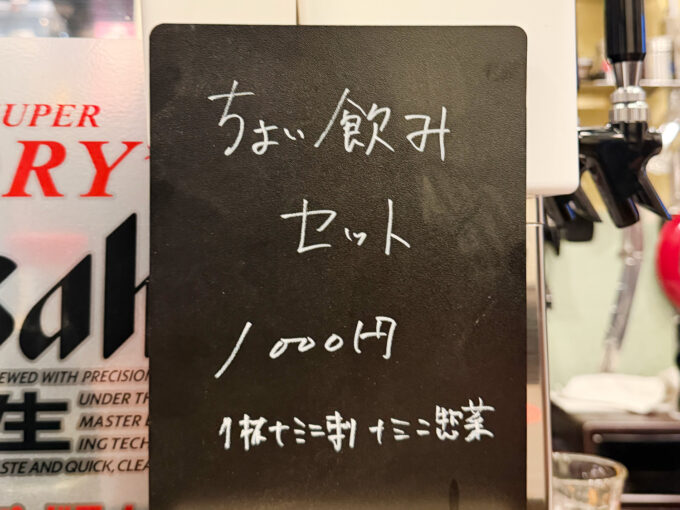 ちょい飲み
セット
1000円
1杯+ミニ刺+ミニ惣菜
SUPER
DRY
Asahi
BREWED WITH PRECISION
生
UNDER TH
MASTER B
ING TECH
TASTE AND QUICK, CLEA